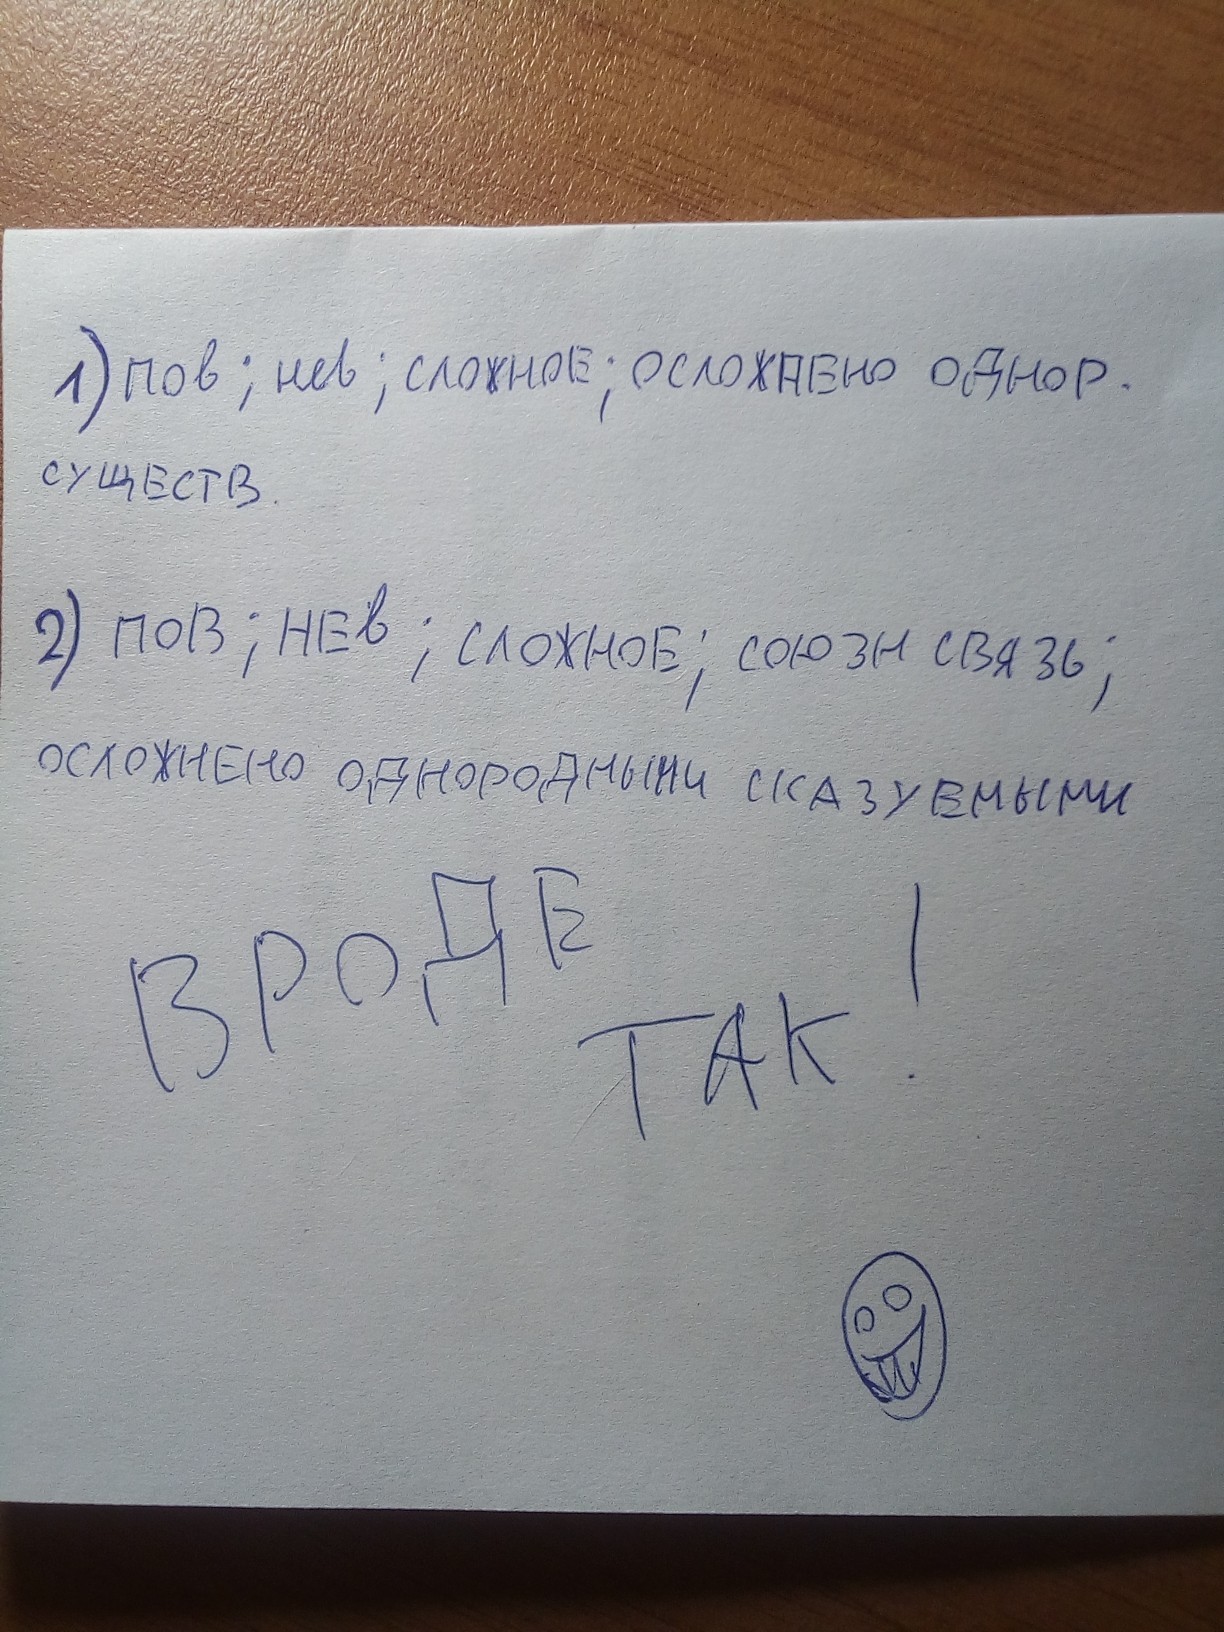 1) пов; нев; сложное; осложнено однор.
существ.
2) пов; нев; сложное; союзн связь;
осложнено однородными сказуемыми
ВРОДЕ
ТАК!